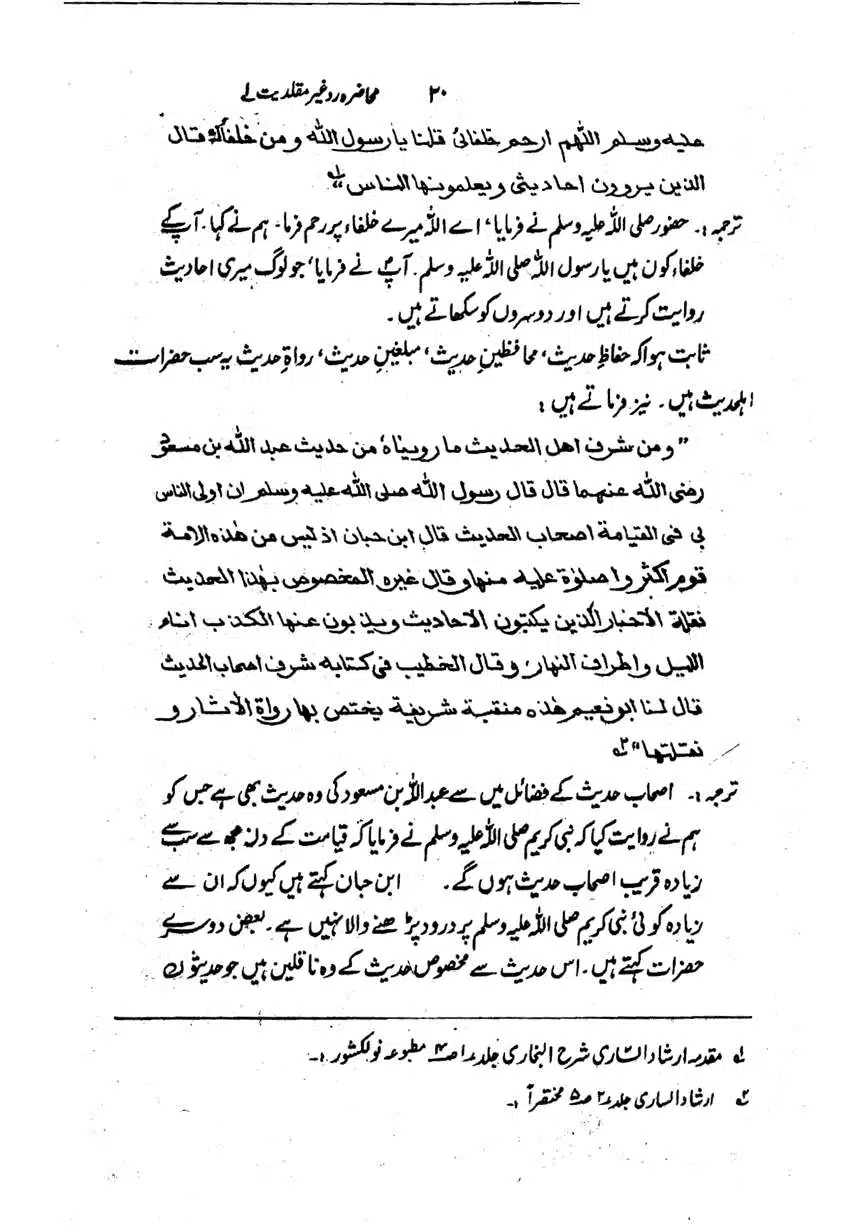 ۲۰ محاضرہ رد غیر مقلدیت لے
علیه وسلم اللهم ارحم خلفائی قلنا یا رسول الله ومن خلفاءك قال
الذین یروون احادیثی ویعلمونها الناس" لے
ترجمہ :۔ حضور صلی اللہ علیہ وسلم نے فرمایا، اے اللہ میرے خلفاء پر رحم فرما۔ ہم نے کہا۔ آپ کے
خلفاء کون ہیں یا رسول اللہ صلی اللہ علیہ وسلم۔ آپؐ نے فرمایا، جو لوگ میری احادیث
روایت کرتے ہیں اور دوسروں کو سکھاتے ہیں۔
ثابت ہوا کہ حفاظِ حدیث، محافظینِ حدیث، مبلغینِ حدیث، رواۃِ حدیث یہ سب حضرات
اہلحدیث ہیں۔ نیز فرماتے ہیں :
"ومن شرف اهل الحدیث ما رویناه من حدیث عبد الله بن مسعود
رضی الله عنهما قال قال رسول الله صلی الله علیه وسلم ان اولی الناس
بی فی القیامة اصحاب الحدیث قال ابن حبان اذ لیس من هذه الامة
قوم اکثر واصلوٰة علیه منها وقال غیره المخصوص بهذا الحدیث
نقلة الاخبار الذین یکتبون الاحادیث ویذبون عنها الکذب اناء
اللیل واطراف النهار وقال الخطیب فی کتابه شرف اصحاب الحدیث
قال لنا ابو نعیم هذه منقبة شریفة یختص بها رواة الاثار و
نقلتها" ۲ے
ترجمہ :۔ اصحاب حدیث کے فضائل میں سے عبد اللہ بن مسعود کی وہ حدیث بھی ہے جس کو
ہم نے روایت کیا کہ نبی کریم صلی اللہ علیہ وسلم نے فرمایا کہ قیامت کے دن مجھ سے سب سے
زیادہ قریب اصحاب حدیث ہوں گے۔ ابن حبان کہتے ہیں کیوں کہ ان سے
زیادہ کوئی نبی کریم صلی اللہ علیہ وسلم پر درود پڑھنے والا نہیں ہے۔ بعض دوسرے
حضرات کہتے ہیں۔ اس حدیث سے مخصوص حدیث کے وہ ناقلین ہیں جو حدیثوں
لے مقدمہ ارشاد الساری شرح البخاری جلد ۱ ص۴ مطبوعہ نولکشور :۔
۲ے ارشاد الساری جلد ۲ ص۵ مختصراً :۔